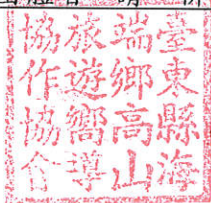 臺東縣海
端鄉高山
旅遊嚮導
協作協會